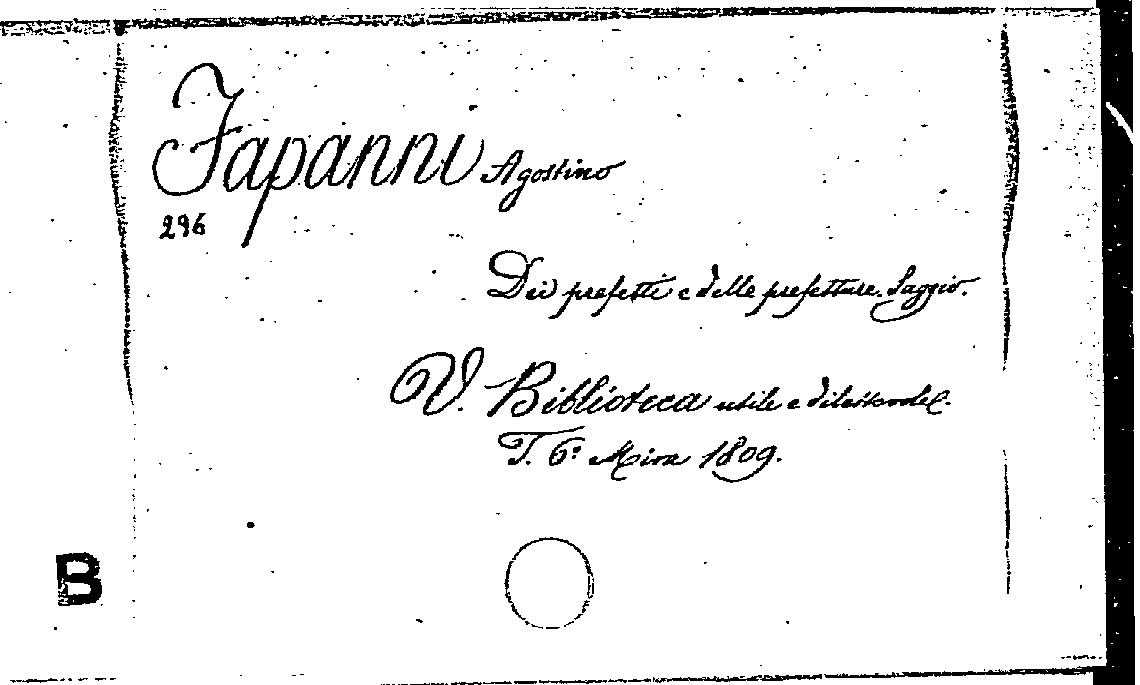 Fapanni Agostino
296
Dei prefetti e delle prefetture. Saggio.
V. Biblioteca utile e dilettevole.
T. 6º Mira 1809.
B